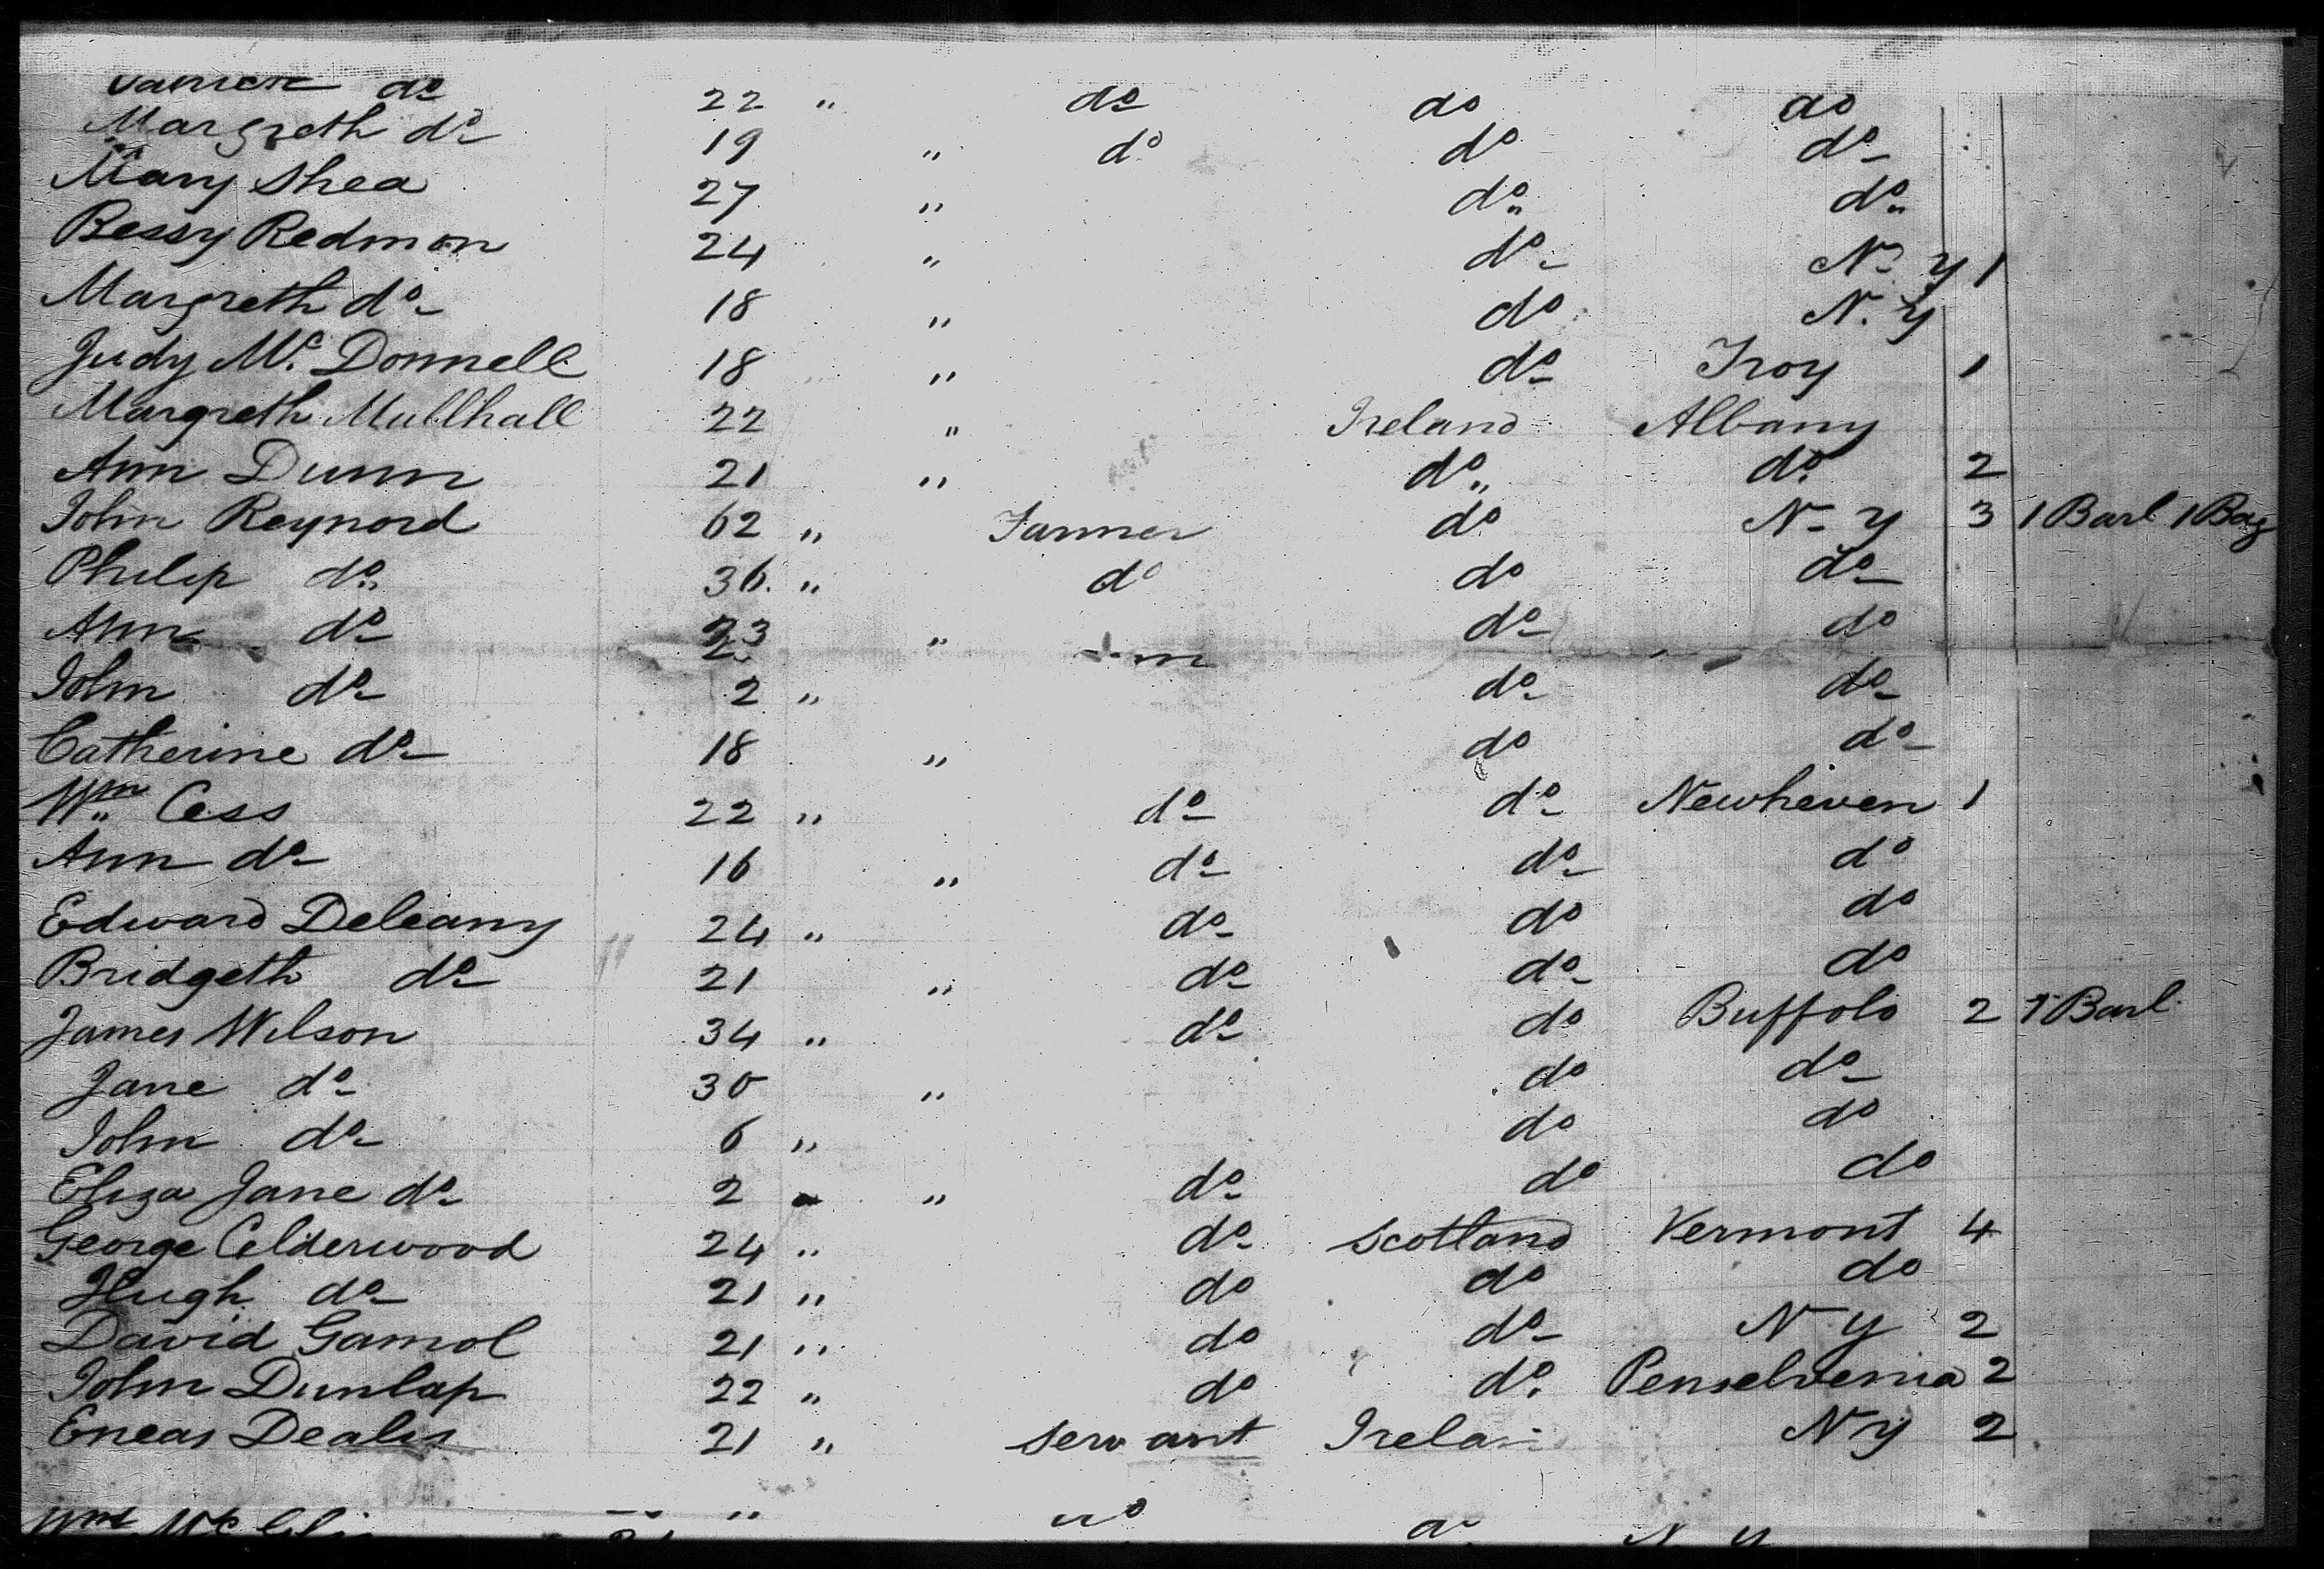 do 22 " do do do
Margreth do 19 " do do do
Mary Shea 27 " do do
Bessy Redmon 24 " do N. Y 1
Margreth do 18 " do N. Y
Judy Mc Donnell 18 " do Troy 1
Margreth Mullhall 22 " Ireland Albany
Ann Dunn 21 " do do 2
John Reynord 62 " Farmer do N. Y 3 1 Barl 1 Bag
Philip do 36 " do do do
Ann do 23 " do do
John do 2 " do do
Catherine do 18 " do do
Wm Cess 22 " do do Newheven 1
Ann do 16 " do do do
Edward Deleany 24 " do do do
Bridgeth do 21 " do do do
James Wilson 34 " do do Buffolo 2 1 Barl
Jane do 30 " do do
John do 6 " do do
Eliza Jane do 2 " do do do
George Celderwood 24 " do Scotland Vermont 4
Hugh do 21 " do do do
David Gamol 21 " do do N Y 2
John Dunlap 22 " do do Penselvenia 2
Eneas Dealis 21 " servant Irelan N Y 2
Wm Mc " do do N Y